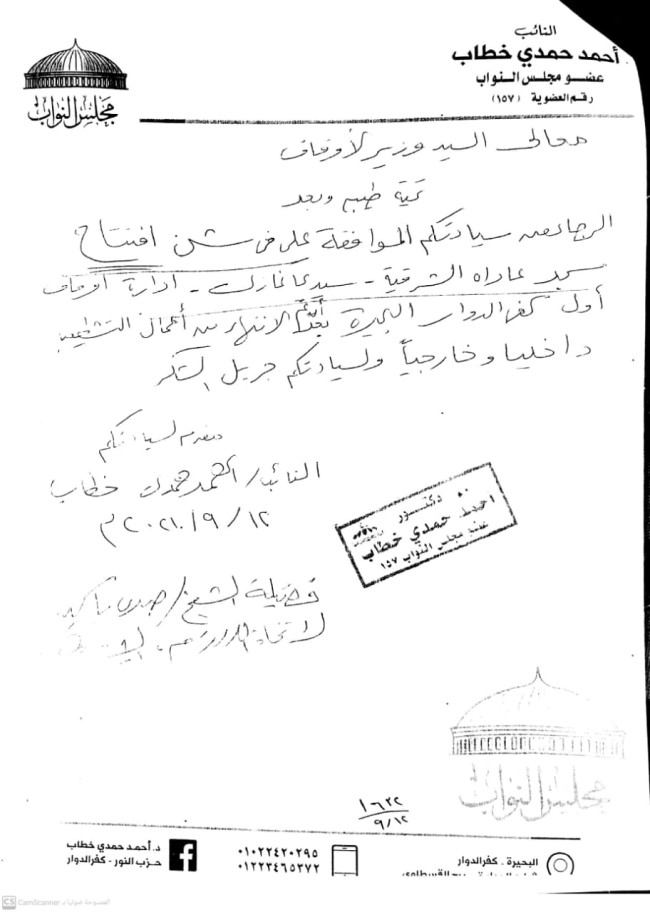 النائب
أحمد حمدي خطاب
عضو مجلس النواب
رقم العضوية (١٥٧)
مجلس النواب
معالى السيد وزير الأوقاف
تحية طيبة وبعد
الرجاء من سيادتكم الموافقة على فرش افتتاح
مسجد الشرقية - سيدى غازى - ادارة أوقاف
أول كفر الدوار البحيرة الانتهاء من أعمال التشطيب
داخليا و خارجياً ولسيادتكم جزيل الشكر
مقدم لسيادتكم
النائب / أحمد حمدى خطاب
١٢ / ٩ / ٢٠٢١ م
دكتور
احمد حمدي خطاب
عضو مجلس النواب ١٥٧
فضيلة الشيخ / صبرى
مجلس النواب
١٦٢٢
٩/١٢
د. أحمد حمدي خطاب
حزب النور - كفر الدوار
٠١٠٢٢٤٢٠٢٩٥
٠١٢٢٣٤٦٥٣٧٢
البحيرة - كفر الدوار
CS CamScanner الممسوحة ضوئيا بـ